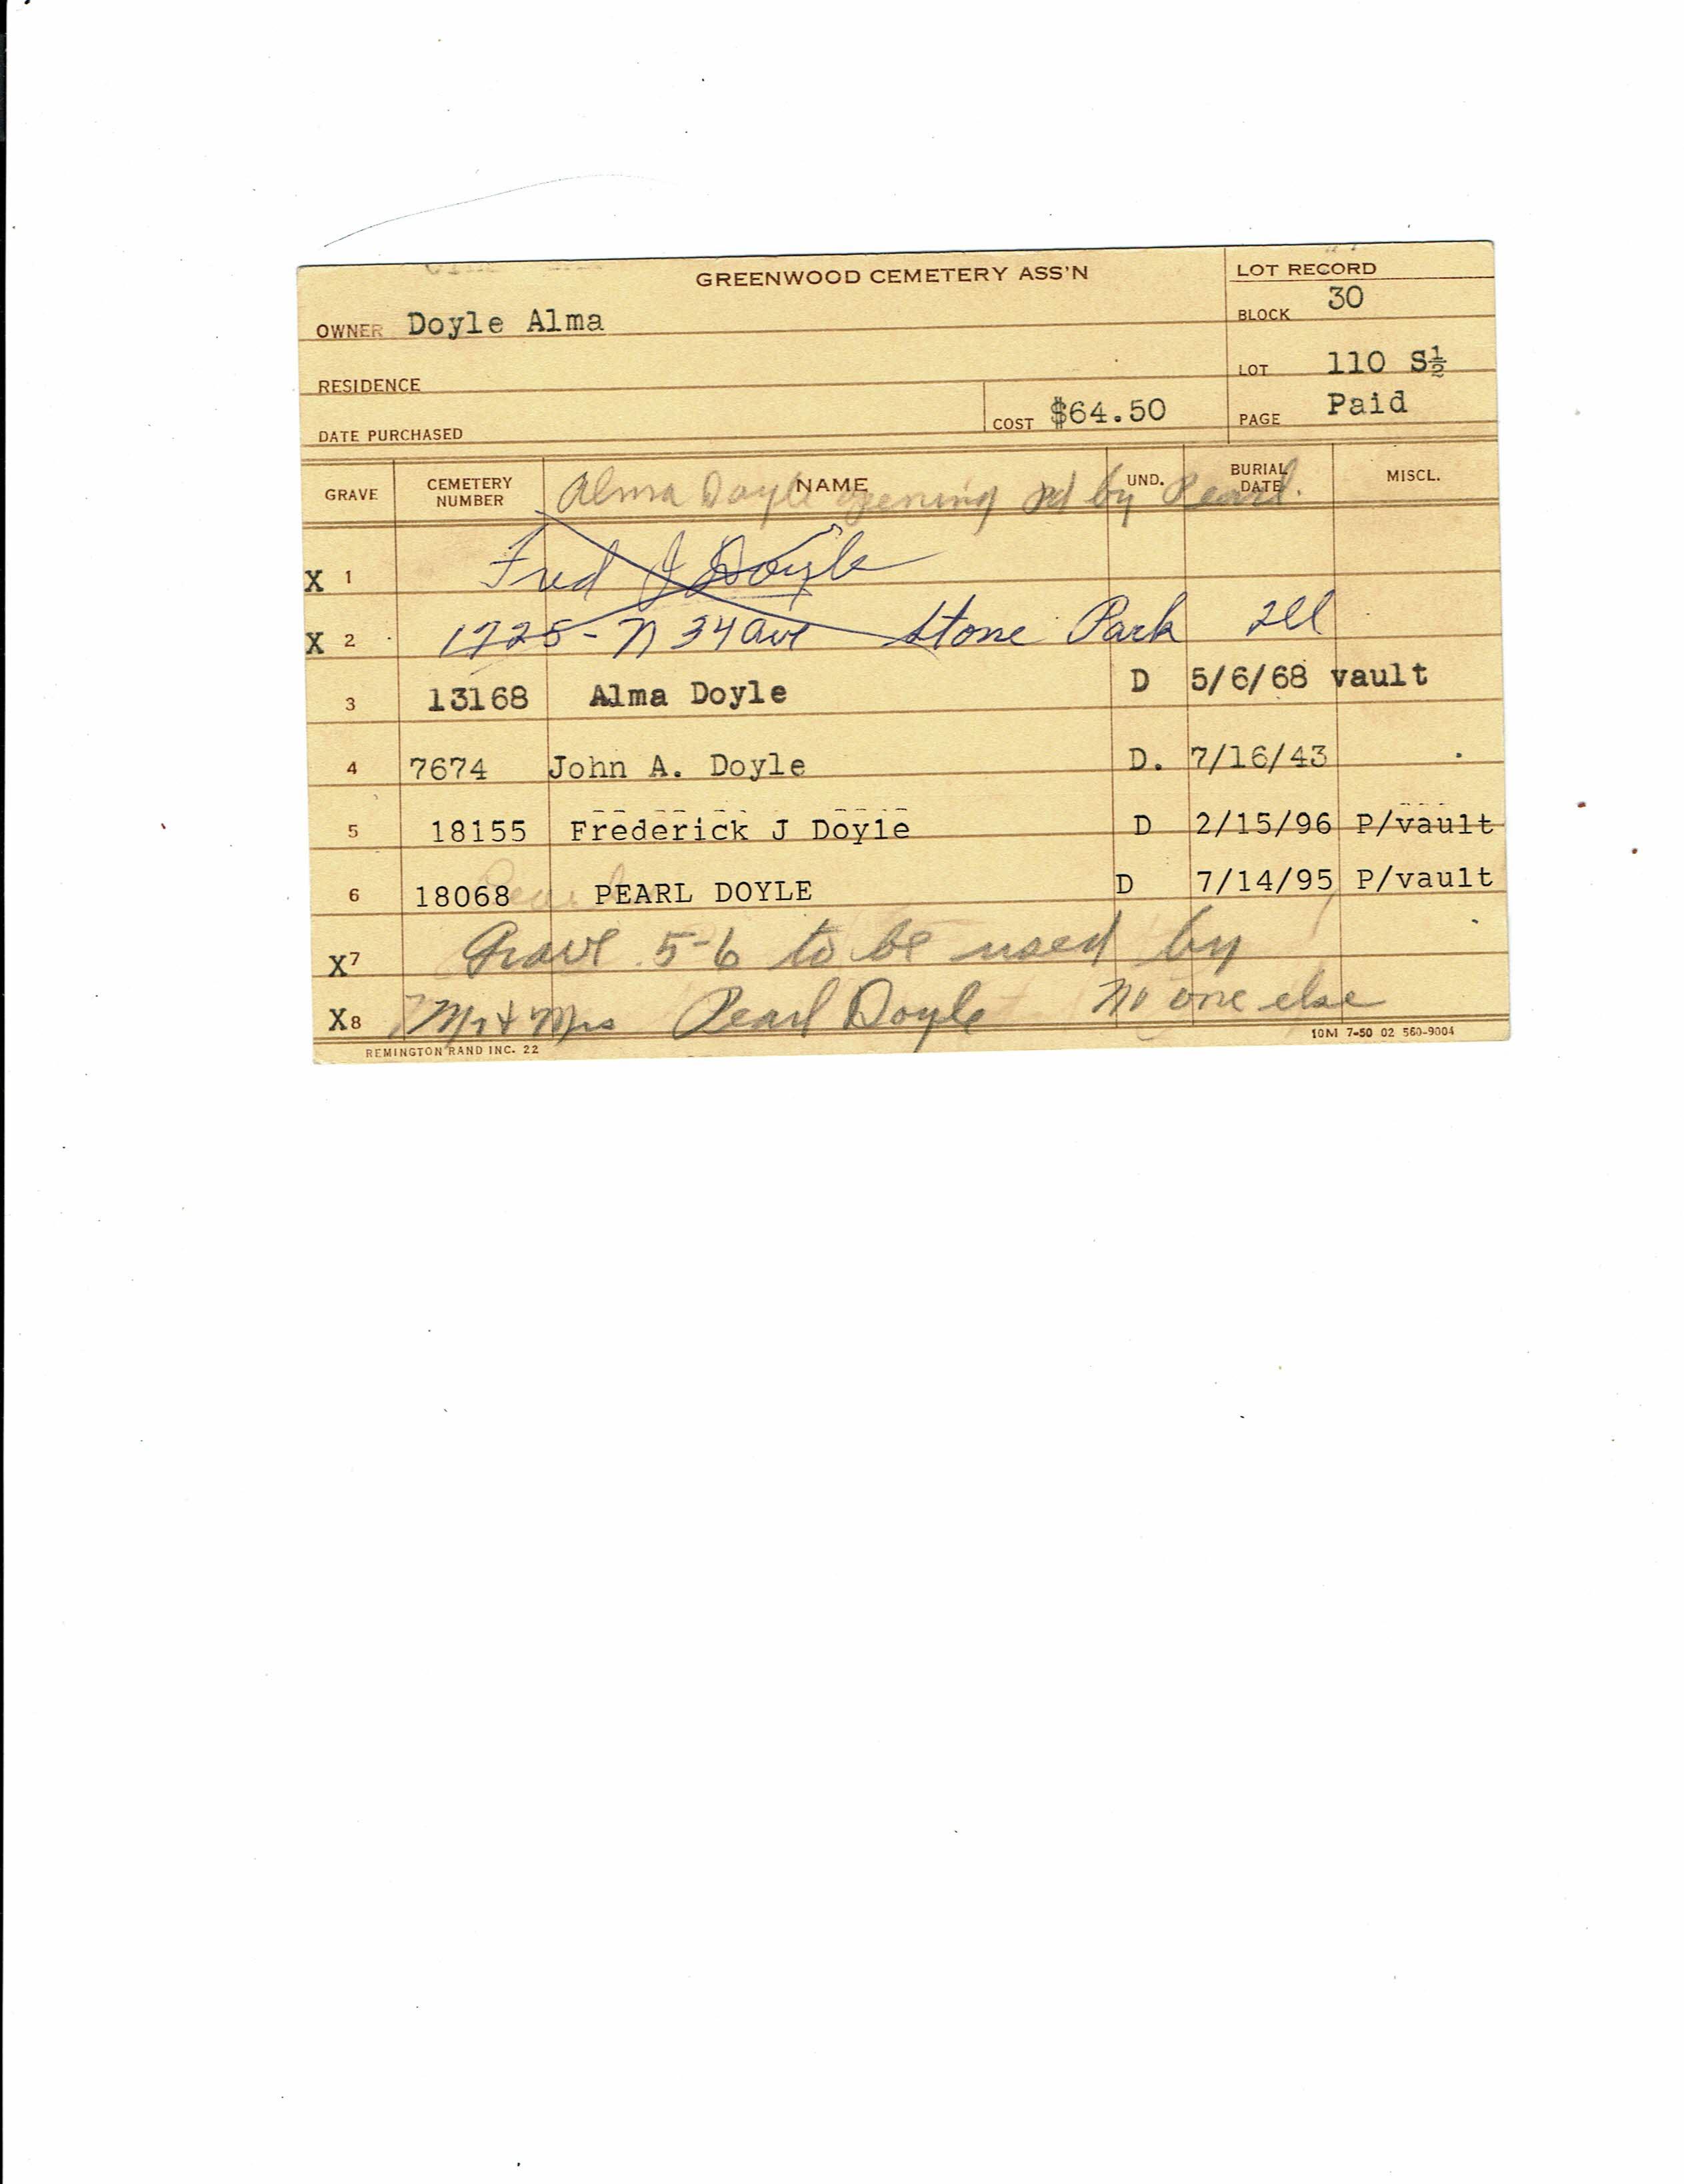 GREENWOOD CEMETERY ASS'N
LOT RECORD
OWNER Doyle Alma
BLOCK 30
RESIDENCE
LOT 110 S½
DATE PURCHASED
COST $64.50
PAGE Paid
GRAVE CEMETERY NUMBER NAME UND. BURIAL DATE MISCL.
Alma Doyle opening pd by Pearl.
X 1 Fred J Doyle
X 2 1725 - N 34 ave Stone Park Ill
3 13168 Alma Doyle D 5/6/68 vault
4 7674 John A. Doyle D. 7/16/43
5 18155 Frederick J Doyle D 2/15/96 P/vault
6 18068 PEARL DOYLE D 7/14/95 P/vault
X7 Grave 5-6 to be used by
X8 Mr & Mrs Pearl Doyle No one else
REMINGTON RAND INC. 22
10M 7-50 02 560-9004